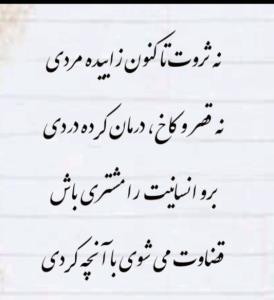 نه ثروت تا کنون زاییده مردی
نه قصر و کاخ، درمان کرده دردی
برو انسانیت را مشتری باش
قضاوت می شوی با آنچه کردی